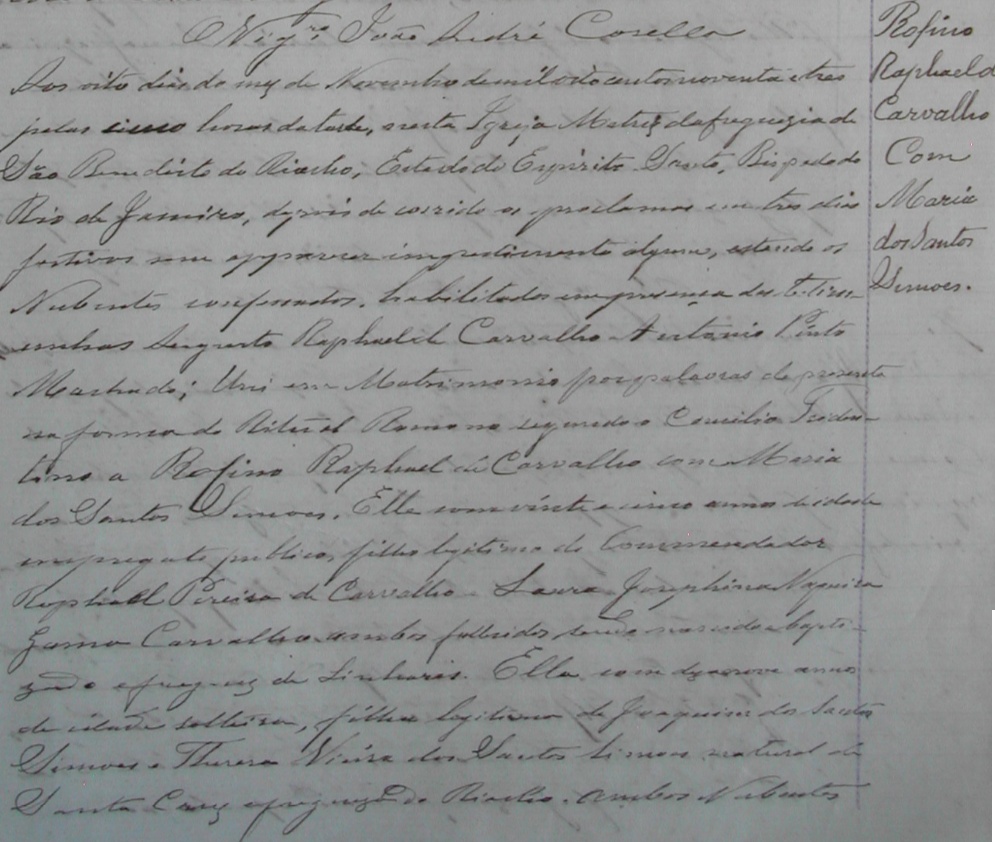 O Vigrº João André Casella
Aos oito dias do mez de Novembro de mil oito centos noventa e tres
pelas cinco horas da tarde, nesta Igreja Matriz da freguezia de
São Benedicto do Riacho, Estado do Espirito Santo, Bispado do
Rio de Janeiro, depois de corrido os proclamas em tres dias
festivos sem apparecer impedimento algum, estando os
Nubentes confessados, habilitados em presença das Testem-
unhas Augusto Raphael de Carvalho e Antonio Pinto
Machado; Uni em Matrimonio por palavras de presente
na forma do Ritual Romano segundo o Concilio Triden-
tino a Rofino Raphael de Carvalho com Maria
dos Santos Simoes. Elle com vinte e cinco annos de idade
empregado publico, filho legitimo do Commendador
Raphael Pereira de Carvalho e Laura Josephina
Gama Carvalho ambos fallecidos sendo nascido e bapti-
zado e freguez de Linhares. Ella com dezenove annos
de idade solteira, filha legitima de Joaquim dos Santos
Simoes e Thereza Vieira dos Santos Simoes natural de
Santa Cruz e freguezã do Riacho. Ambos Nubentes
Rofino
Raphael d
Carvalho
Com
Maria
dos Santos
Simoes.